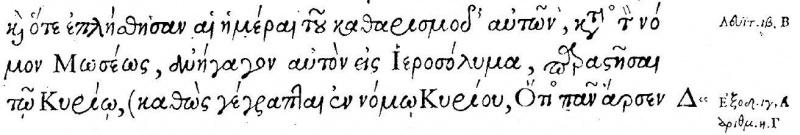 καὶ ὅτε ἐπλήσθησαν αἱ ἡμέραι τοῦ καθαρισμοῦ αὐτῶν, κατὰ τὸν νό
μον Μωσέως, ἀνήγαγον αὐτὸν εἰς Ἱεροσόλυμα, παραστῆσαι
τῷ Κυρίῳ, (καθὼς γέγραπται ἐν νόμῳ Κυρίου, Ὅτι πᾶν ἄρσεν Δ“
Λευϊτ. ιβ, Β
Ἐξοδ. ιγ, Α
ἀριθμ. η. Γ